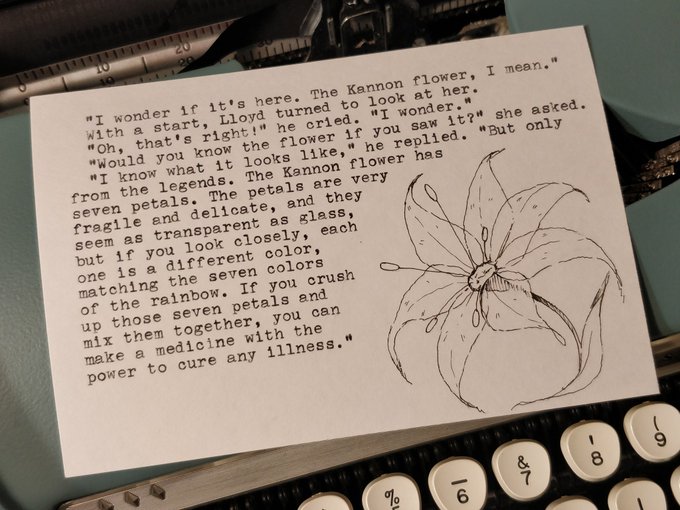 20 10 0 10
"I wonder if it's here. The Kannon flower, I mean."
With a start, Lloyd turned to look at her.
"Oh, that's right!" he cried. "I wonder."
"Would you know the flower if you saw it?" she asked.
"I know what it looks like," he replied. "But only
from the legends. The Kannon flower has
seven petals. The petals are very
fragile and delicate, and they
seem as transparent as glass,
but if you look closely, each
one is a different color,
matching the seven colors
of the rainbow. If you crush
up those seven petals and
mix them together, you can
make a medicine with the
power to cure any illness."
% – & ' (
6 7 8 9